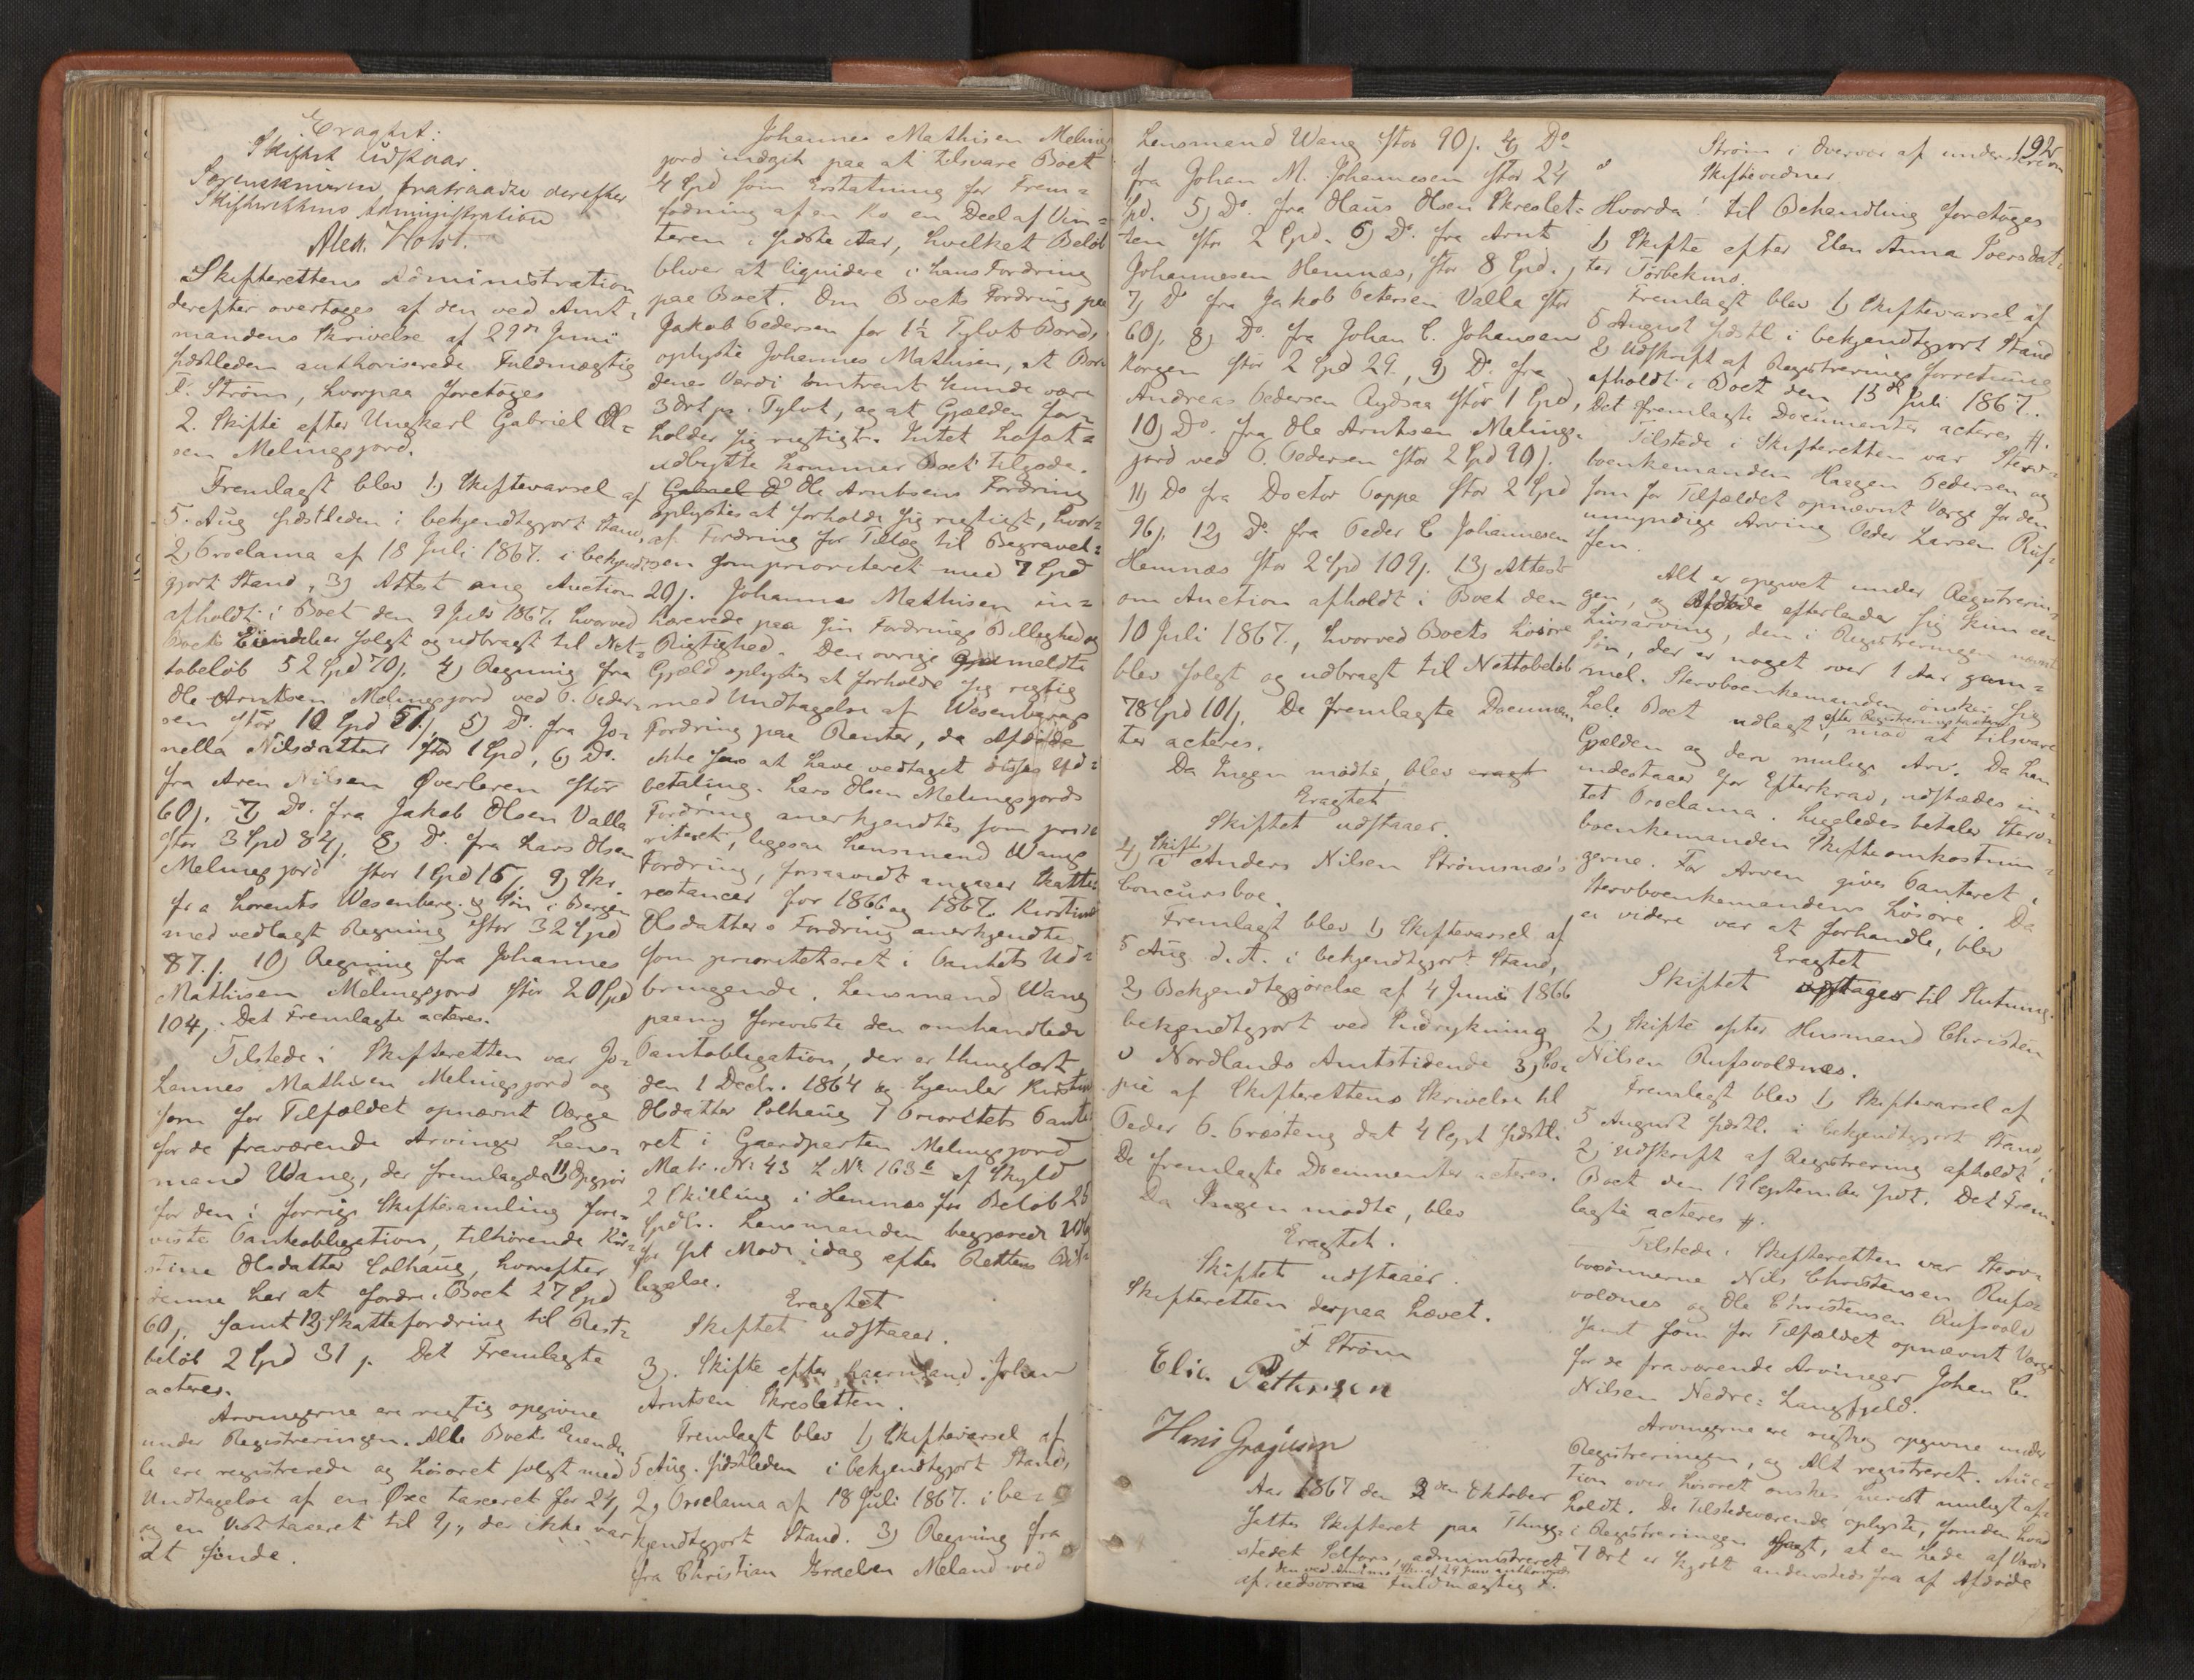 Eragtet:
Skiftet udstaar.
Sorenskriveren fratraadte derefter
Skifterettens Administration
Alex. Holst.
Skifterettens Administration
derefter overtoges af den ved Amt-
mandens Skrivelse af 29de Juni
sidstleden authoriserede Fuldmægtig
F. Strøm, hvorpaa foretoges
2. Skifte efter Ungkarl Gabriel Ol-
sen Melingsjord.
Fremlagt blev 1) Skiftevarsel af
5. Aug sidstleden i bekjendtgjort Stand,
2) Proclama af 18 Juli 1867. i bekjendt-
gjort Stand, 3) Attest ang Auction
afholdt i Boet den 9 Juli 1867, hvorved
Boets Eiendeler solgt og udbragt til Net-
tobeløb 52 Spd 70 s. 4) Regning fra
Ole Arntsen Melingsjord ved P. Peder-
sen stor 10 Spd 51 s, 5) Do. fra
nella Nilsdatter stor 1 Spd, 6) Do.
fra Aren Nilsen Øverleren stor
60 s. 7) Do. fra Jakob Olsen Valla
stor 3 Spd 84 s. 8) Do. fra Lars Olsen
Melingsjord stor 1 Spd 16 s, 9) Skr.
fra Lorents Wesenberg & Søn i Bergen
med vedlagt Regning stor 32 Spd
87 s. 10) Regning fra Johannes
Mathisen Melingsjord stor 20 Spd
104 s. Det Fremlagte acteres.
Tilstede i Skifteretten var Jo-
hannes Mathisen Melingsjord og
som for Tilfældet opnævnt Værge
for de fraværende Arvinger Lens-
mand Wang, der fremlagde 11) Opgjør
for den i forrige Skiftesamling fore-
viste Panteobligation, tilhørende Kir-
stine Olsdatter Solhaug, hvorefter
denne har at fordre i Boet 27 Spd
60 s. samt 12) Skattefordring til Rest-
beløb 2 Spd 31 s. Det Fremlagte
acteres.
Arvingerne ere rigtig opgivne
under Registreringen. Alle Boets Eiende-
le ere registrerede og Løsøret solgt med
Undtagelse af en Øxe taxeret for 24 s,
og en Vest taxeret til, der ikke var
at finde.
Johannes Mathisen Melings-
jord indgik paa at tilsvare Boet
4 Spd som Erstatning for Frem-
fødning af en Ko en Deel af Vin-
teren i sidste Aar, hvilket Beløb
bliver at liquidere i hans Fordring
paa Boet. Om Boets Fordring paa
Jakob Pedersen for 1½ Tylvt Bord,
oplyste Johannes Mathisen, at Bor-
denes Værdi omtrent kunde være
3 Ort pr. Tylvt, og at Gjælden for-
holder sig rigtigt. Intet
udbytte kommer Boet tilgode.
Gabriel O Ole Arntsens Fordring
oplystes at forholde sig rigtigt, hvor-
af Fordring for Tillæg til Begravel-
sen som prioriteret med 7 Spd
20 s. Johannes Mathisen in-
hærerede paa sin Fordrings Billighed og
Rigtighed. Den øvrige meldte
Gjæld oplystes at forholde sig rigtig
med Undtagelse af Wesenbergs
Fordring paa Renter, da Afdøde
ikke at have vedtaget disses Ud-
betaling. Lars Olsen Melingsjords
Fordring anerkjendtes som prio-
riteret, ligesaa Lensmand Wangs
Fordring, forsaavidt angaaer Skatte-
restancer for 1866 og 1867. Kirstine
Olsdatters Fordring anerkjendtes
som prioriteteret i Pantets Ud-
bringende. Lensmand Wang
paany foreviste den omhandlede
Pantobligation, der er thinglæst
den 1 Decbr. 1864 og hjemler Kirstine
Olsdatter Solhaug 1 Prioritets Pante-
ret i Gaardparten Melingsjord
Matr. No. 43 L No. 163c af Skyld
2 Skilling i Hemnæs for Beløb 25
Spdlr. Lensmanden begjærede
for sit Møde idag efter Rettens Bil-
legelse.
Eragtet
Skiftet udstaaer.
3). Skifte efter Johan
Arntsen Skresletten.
Fremlagt blev 1) Skiftevarsel af
5 Aug. sidstleden i bekjendtgjort Stand,
2) Proclama af 18 Juli 1867. i be-
kjendtgjort Stand. 3) Regning fra
fra Christian Israelsen Meland ved
Lensmand Wang stor 90 s. 4) Do
fra Johan M. Johannesen stor 24
Spd. 5) Do. fra Hans Olsen Skreslet-
ten stor 2 Spd. 6) Do. fra Arnt
Johannesen Hemnæs, stor 8 Spd.,
7) Do fra Jakob Petersen Valla stor
60 s. 8) Do. fra Johan C. Johansen
Korgen stor 2 Spd 29., 9) Do. fra
Andreas Pedersen Rydsaa stor 1 Spd,
10) Do. fra Ole Arntsen Melings-
jord ved P. Pedersen stor 2 Spd 90 s.
11) Do fra Doctor Coppe stor 2 Spd
96 s. 12) Do. fra Peder C Johannesen
Hemnæs stor 2 Spd 109 s. 13) Attest
om Auction afholdt i Boet den
10 Juli 1867., hvorved Boets Løsøre
blev solgt og udbragt til Nettobeløb
78 Spd 101 s. De fremlagte Documen-
ter acteres.
Da Ingen mødte, blev eragt
Eragtet
Skiftet udstaaer.
4) Skifte Anders Nilsen Strømsnæs's
Concursboe.
Fremlagt blev 1) Skiftevarsel af
5 Aug. d. A. i bekjendtgjort Stand,
2) Bekjendtgjørelse af 4 Juni 1866
bekjendtgjort ved Indrykning
i Nordlands Amtstidende 3) Co-
pie af Skifterettens Skrivelse til
Peder P. Præsteng dat 4 Sept sidstl.
De fremlagte Documenter acteres.
Da Ingen mødte, blev
Eragtet.
Skiftet udstaaer.
Skifteretten derpaa hævet.
F Strøm
Elias Pettersen
Hans Gregusen
Aar 1867 den 3den Oktober
sattes Skifteret paa Thing-
stedet Selfors, administreret
den ved Amtmds Skr af 29 Juni authoriserede
af edsvoren Fuldmægtig F.
192
Strøm i Overvær af underskrevne
Skiftevidner
Hvorda! til Behandling foretoges
1) Skifte efter Elen Anna Iversdat-
ter Førbekmo.
Fremlagt blev 1) Skiftevarsel af
5 August sidstl i bekjendtgjort Stand
2) Udskrift af Registreringsforretning
afholdt i Boet den 13de Juli 1867.
Det fremlagte Documenter acteres #.
Tilstede i Skifteretten var Sterv-
boenkemanden Haagen Pedersen og
som for Tilfældet opnævnt Værge for den
umyndige Arving Peder Larsen Rus-
sen.
Alt er opgivet under Registrerin-
gen, og Afdøde efterlader sig kun een
Livsarving, den i Registreringen nævnte
Søn, der er noget over 1 Aar gam-
mel. Stervboenkemanden ønsker sig
hele Boet udlagt, efter Registreringstaxten mod at tilsvare
Gjælden og den mulige Arv. Da han
indestaaer for Efterkrav, udstædes in-
tet Proclama. Ligeledes betaler Sterv-
boenkemanden Skifteomkostnin-
gerne. For Arven gives Panteret i
Stervboenkemandens Løsøre. Da
ei videre var at forhandle, blev
Eragtet
Skiftet optages til Slutning.
2) Skifte efter Husmand Christen
Nilsen Rufsvoldnes.
Fremlagt blev 1) Skiftevarsel af
5 August sidstl. i bekjendtgjort Stand,
2) Udskrift af Registrering afholdt i
Boet den 19 September sidst. Det frem-
lagte acteres #.
Tilstede i Skifteretten var Sterv-
bosønnerne Nils Christensen Rufs-
voldnes og Ole Christensen Rufsvold
samt som for Tilfældet opnævnt Værge
for de fraværende Arvinger Johan Chr.
Nilsen Nedre-Langfjeld.
Arvingerne ere rigtig opgivne under
Registreringen, og Alt registreret. Auc-
tion over Løsøret ønskes snarest muligt af-
holdt. De Tilstedeværende oplyste, foruden hvad
i Registreringen sagt, at en Hede af Værdi
7 Ort er kjøbt andenstedsfra af Afdøde